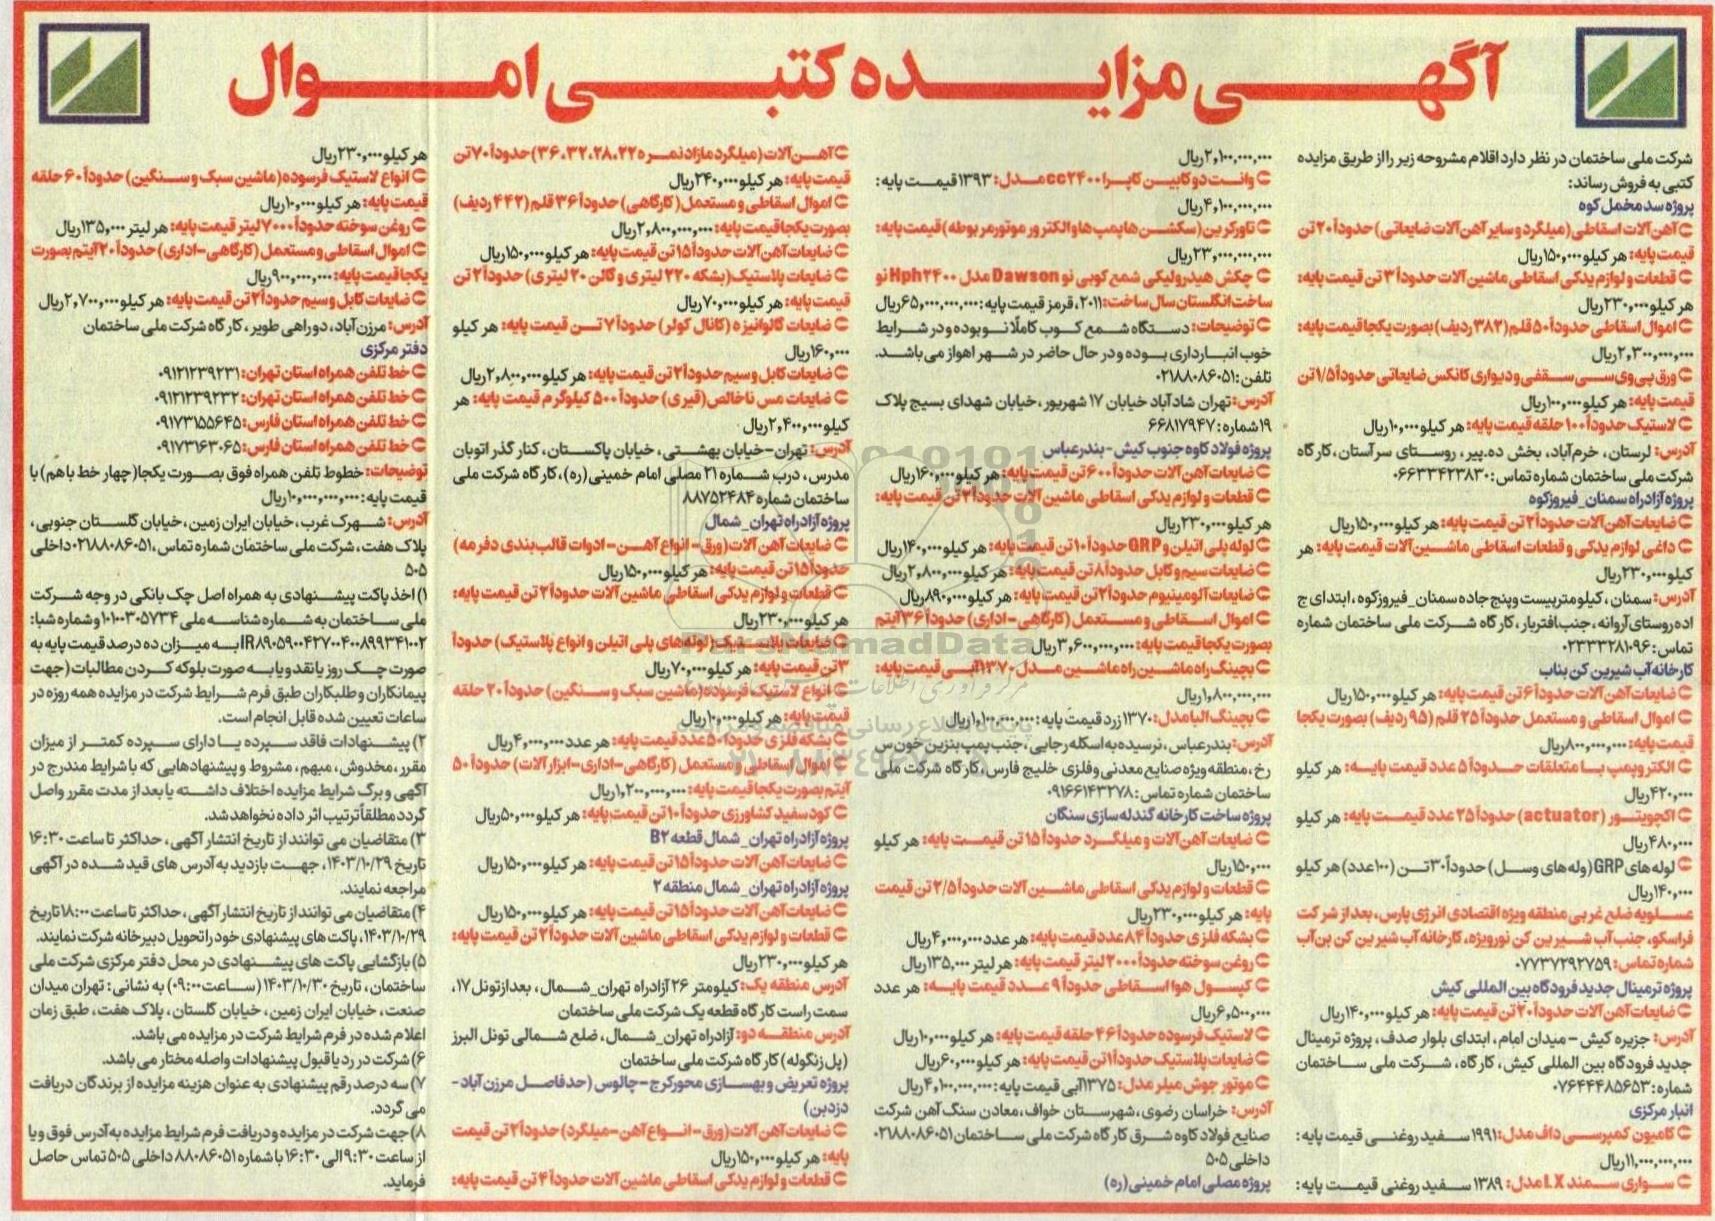 آگهی مزایده کتبی اموال
شرکت ملی ساختمان در نظر دارد اقلام مشروحه زیر را از طریق مزایده
کتبی به فروش رساند:
پروژه سد مخمل کوه
آهن آلات اسقاطی (میلگرد و سایر آهن آلات ضایعاتی) حدوداً ۲۰ تن
قیمت پایه: هر کیلو ۱۵۰,۰۰۰ ریال
قطعات و لوازم یدکی اسقاطی ماشین آلات حدوداً ۳ تن قیمت پایه:
هر کیلو ۲۳۰,۰۰۰ ریال
اموال اسقاطی حدوداً ۵۰ قلم (۳۸۲ ردیف) بصورت یکجا قیمت پایه:
۲,۳۰۰,۰۰۰,۰۰۰ ریال
ورق پی وی سی سقفی و دیواری کانکس ضایعاتی حدوداً ۱/۵ تن
قیمت پایه: هر کیلو ۱۰۰,۰۰۰ ریال
لاستیک حدوداً ۱۰۰ حلقه قیمت پایه: هر کیلو ۱۰,۰۰۰ ریال
آدرس: لرستان، خرم آباد، بخش ده پیر، روستای سر آستان، کارگاه
شرکت ملی ساختمان شماره تماس: ۰۶۶۳۳۴۲۳۸۳۰
پروژه آزادراه سمنان_فیروزکوه
ضایعات آهن آلات حدوداً ۲ تن قیمت پایه: هر کیلو ۱۵۰,۰۰۰ ریال
داغی لوازم یدکی و قطعات اسقاطی ماشین آلات قیمت پایه: هر
کیلو ۲۳۰,۰۰۰ ریال
آدرس: سمنان، کیلومتر بیست و پنج جاده سمنان_فیروزکوه، ابتدای ج
اده روستای آروانه، جنب افتریار، کارگاه شرکت ملی ساختمان شماره
تماس: ۰۲۳۳۳۲۸۱۰۹۶
کارخانه آب شیرین کن بناب
ضایعات آهن آلات حدوداً ۶ تن قیمت پایه: هر کیلو ۱۵۰,۰۰۰ ریال
اموال اسقاطی و مستعمل حدوداً ۲۵ قلم (۹۵ ردیف) بصورت یکجا
قیمت پایه: ۸۰۰,۰۰۰,۰۰۰ ریال
الکتروپمپ با متعلقات حدوداً ۵ عدد قیمت پایه: هر کیلو
۴۲۰,۰۰۰ ریال
اکچویتور (actuator) حدوداً ۲۵ عدد قیمت پایه: هر کیلو
۴۸۰,۰۰۰ ریال
لوله های GRP (وله های وسل) حدوداً ۳۰ تن (۱۰۰ عدد) هر کیلو
۱۴۰,۰۰۰ ریال
عسلویه ضلع غربی منطقه ویژه اقتصادی انرژی پارس، بعد از شرکت
فراسکو، جنب آب شیرین کن نورویژه، کارخانه آب شیرین کن بن آب
شماره تماس: ۰۷۷۳۷۲۹۲۷۵۹
پروژه ترمینال جدید فرودگاه بین المللی کیش
ضایعات آهن آلات حدوداً ۲۰ تن قیمت پایه: هر کیلو ۱۴۰,۰۰۰ ریال
آدرس: جزیره کیش - میدان امام، ابتدای بلوار صدف، پروژه ترمینال
جدید فرودگاه بین المللی کیش، کارگاه، شرکت ملی ساختمان
شماره: ۰۷۶۴۴۴۸۵۶۵۳
انبار مرکزی
کامیون کمپرسی داف مدل: ۱۹۹۱ سفید روغنی قیمت پایه:
۱۱,۰۰۰,۰۰۰,۰۰۰ ریال
سواری سمند LX مدل: ۱۳۸۹ سفید روغنی قیمت پایه:
۲,۱۰۰,۰۰۰,۰۰۰ ریال
وانت دو کابین کاپرا cc۲۴۰۰ مدل: ۱۳۹۳ قیمت پایه:
۴,۱۰۰,۰۰۰,۰۰۰ ریال
تاورکرین (سکشن ها پمپ ها و الکترو موتور مربوطه) قیمت پایه:
۲۳,۰۰۰,۰۰۰,۰۰۰ ریال
چکش هیدرولیکی شمع کوبی نو Dawson مدل Hph۲۴۰۰ نو
ساخت انگلستان سال ساخت: ۲۰۱۱، قرمز قیمت پایه: ۶۵,۰۰۰,۰۰۰,۰۰۰ ریال
توضیحات: دستگاه شمع کوب کاملاً نو بوده و در شرایط
خوب انبارداری بوده و در حال حاضر در شهر اهواز می باشد.
تلفن: ۰۲۱۸۸۰۸۶۰۵۱
آدرس: تهران شادآباد خیابان ۱۷ شهریور، خیابان شهدای بسیج پلاک
۱۹ شماره: ۶۶۸۱۷۹۴۷
پروژه فولاد کاوه جنوب کیش - بندرعباس
ضایعات آهن آلات حدوداً ۶۰۰ تن قیمت پایه: هر کیلو ۱۶۰,۰۰۰ ریال
قطعات و لوازم یدکی اسقاطی ماشین آلات حدوداً ۲ تن قیمت پایه:
هر کیلو ۲۳۰,۰۰۰ ریال
لوله پلی اتیلن و GRP حدوداً ۱۰ تن قیمت پایه: هر کیلو ۱۴۰,۰۰۰ ریال
ضایعات سیم و کابل حدوداً ۸ تن قیمت پایه: هر کیلو ۲,۸۰۰,۰۰۰ ریال
ضایعات آلومینیوم حدوداً ۲ تن قیمت پایه: هر کیلو ۸۹۰,۰۰۰ ریال
اموال اسقاطی و مستعمل (کارگاهی - اداری) حدوداً ۳۶ آیتم
بصورت یکجا قیمت پایه: ۳,۶۰۰,۰۰۰,۰۰۰ ریال
بچینگ راه ماشین راه ماشین مدل ۱۳۷۰ آبی قیمت پایه:
۱,۸۰۰,۰۰۰,۰۰۰ ریال
بچینگ البا مدل: ۱۳۷۰ زرد قیمت پایه: ۱,۱۰۰,۰۰۰,۰۰۰ ریال
آدرس: بندرعباس، نرسیده به اسکله رجایی، جنب پمپ بنزین خون س
رخ، منطقه ویژه صنایع معدنی و فلزی خلیج فارس، کارگاه شرکت ملی
ساختمان شماره تماس: ۰۹۱۶۶۱۴۳۲۷۸
پروژه ساخت کارخانه گندله سازی سنگان
ضایعات آهن آلات و میلگرد حدوداً ۱۵ تن قیمت پایه: هر کیلو
۱۵۰,۰۰۰ ریال
قطعات و لوازم یدکی اسقاطی ماشین آلات حدوداً ۲/۵ تن قیمت
پایه: هر کیلو ۲۳۰,۰۰۰ ریال
بشکه فلزی حدوداً ۸۴ عدد قیمت پایه: هر عدد ۴,۰۰۰,۰۰۰ ریال
روغن سوخته حدوداً ۲۰۰۰ لیتر قیمت پایه: هر لیتر ۱۳۵,۰۰۰ ریال
کپسول هوا اسقاطی حدوداً ۹ عدد قیمت پایه: هر عدد
۶,۵۰۰,۰۰۰ ریال
لاستیک فرسوده حدوداً ۴۶ حلقه قیمت پایه: هر کیلو ۱۰,۰۰۰ ریال
ضایعات پلاستیک حدوداً ۱ تن قیمت پایه: هر کیلو ۶۰,۰۰۰ ریال
موتور جوش میلر مدل: ۱۳۷۵ آبی قیمت پایه: ۴,۱۰۰,۰۰۰,۰۰۰ ریال
آدرس: خراسان رضوی، شهرستان خواف، معادن سنگ آهن شرکت
صنایع فولاد کاوه شرق کارگاه شرکت ملی ساختمان ۰۲۱۸۸۰۸۶۰۵۱
داخلی ۵۰۵
پروژه مصلی امام خمینی (ره)
آهن آلات (میلگرد مازاد نمره ۲۲، ۲۸، ۳۲، ۳۶) حدوداً ۷۰ تن
قیمت پایه: هر کیلو ۲۴۰,۰۰۰ ریال
اموال اسقاطی و مستعمل (کارگاهی) حدوداً ۳۶ قلم (۴۴۲ ردیف)
بصورت یکجا قیمت پایه: ۲,۸۰۰,۰۰۰,۰۰۰ ریال
ضایعات آهن آلات حدوداً ۱۵ تن قیمت پایه: هر کیلو ۱۵۰,۰۰۰ ریال
ضایعات پلاستیک (بشکه ۲۲۰ لیتری و گالن ۲۰ لیتری) حدوداً ۲ تن
قیمت پایه: هر کیلو ۷۰,۰۰۰ ریال
ضایعات گالوانیزه (کانال کولر) حدوداً ۷ تن قیمت پایه: هر کیلو
۱۶۰,۰۰۰ ریال
ضایعات کابل و سیم حدوداً ۲ تن قیمت پایه: هر کیلو ۲,۸۰۰,۰۰۰ ریال
ضایعات مس ناخالص (قیری) حدوداً ۵۰۰ کیلوگرم قیمت پایه: هر
کیلو ۲,۴۰۰,۰۰۰ ریال
آدرس: تهران - خیابان بهشتی، خیابان پاکستان، کنار گذر اتوبان
مدرس، درب شماره ۲۱ مصلی امام خمینی (ره)، کارگاه شرکت ملی
ساختمان شماره ۸۸۷۵۲۴۸۴
پروژه آزادراه تهران_شمال
ضایعات آهن آلات (ورق - انواع آهن - ادوات قالب بندی دفرمه)
حدوداً ۱۵ تن قیمت پایه: هر کیلو ۱۵۰,۰۰۰ ریال
قطعات و لوازم یدکی اسقاطی ماشین آلات حدوداً ۲ تن قیمت پایه:
هر کیلو ۲۳۰,۰۰۰ ریال
ضایعات پلاستیک (لوله های پلی اتیلن و انواع پلاستیک) حدوداً
۳ تن قیمت پایه: هر کیلو ۷۰,۰۰۰ ریال
انواع لاستیک فرسوده (ماشین سبک و سنگین) حدوداً ۲۰ حلقه
قیمت پایه: هر کیلو ۱۰,۰۰۰ ریال
بشکه فلزی حدوداً ۵۰ عدد قیمت پایه: هر عدد ۴,۰۰۰,۰۰۰ ریال
اموال اسقاطی و مستعمل (کارگاهی - اداری - ابزارآلات) حدوداً ۵۰
آیتم بصورت یکجا قیمت پایه: ۱,۲۰۰,۰۰۰,۰۰۰ ریال
کود سفید کشاورزی حدوداً ۱۰ تن قیمت پایه: هر کیلو ۵۰,۰۰۰ ریال
پروژه آزادراه تهران_شمال قطعه B۲
ضایعات آهن آلات حدوداً ۱۵ تن قیمت پایه: هر کیلو ۱۵۰,۰۰۰ ریال
پروژه آزادراه تهران_شمال منطقه ۲
ضایعات آهن آلات حدوداً ۱۵ تن قیمت پایه: هر کیلو ۱۵۰,۰۰۰ ریال
قطعات و لوازم یدکی اسقاطی ماشین آلات حدوداً ۲ تن قیمت پایه:
هر کیلو ۲۳۰,۰۰۰ ریال
آدرس منطقه یک: کیلومتر ۲۶ آزادراه تهران_شمال، بعد از تونل ۱۷،
سمت راست کارگاه قطعه یک شرکت ملی ساختمان
آدرس منطقه دو: آزادراه تهران_شمال، ضلع شمالی تونل البرز
(پل زنگوله) کارگاه شرکت ملی ساختمان
پروژه تعریض و بهسازی محور کرج - چالوس (حدفاصل مرزن آباد -
دزدبن)
ضایعات آهن آلات (ورق - انواع آهن - میلگرد) حدوداً ۲ تن قیمت
پایه: هر کیلو ۱۵۰,۰۰۰ ریال
قطعات و لوازم یدکی اسقاطی ماشین آلات حدوداً ۴ تن قیمت پایه:
هر کیلو ۲۳۰,۰۰۰ ریال
انواع لاستیک فرسوده (ماشین سبک و سنگین) حدوداً ۶۰ حلقه
قیمت پایه: هر کیلو ۱۰,۰۰۰ ریال
روغن سوخته حدوداً ۷۰۰۰ لیتر قیمت پایه: هر لیتر ۱۳۵,۰۰۰ ریال
اموال اسقاطی و مستعمل (کارگاهی - اداری) حدوداً ۲۰ آیتم بصورت
یکجا قیمت پایه: ۹۰۰,۰۰۰,۰۰۰ ریال
ضایعات کابل و سیم حدوداً ۲ تن قیمت پایه: هر کیلو ۲,۷۰۰,۰۰۰ ریال
آدرس: مرزن آباد، دوراهی طویر، کارگاه شرکت ملی ساختمان
دفتر مرکزی
خط تلفن همراه استان تهران: ۰۹۱۲۱۲۳۹۲۳۱
خط تلفن همراه استان تهران: ۰۹۱۲۱۲۳۹۲۳۲
خط تلفن همراه استان فارس: ۰۹۱۷۳۱۵۵۶۴۵
خط تلفن همراه استان فارس: ۰۹۱۷۳۱۶۳۰۶۵
توضیحات: خطوط تلفن همراه فوق بصورت یکجا (چهار خط با هم) با
قیمت پایه: ۱۰,۰۰۰,۰۰۰,۰۰۰ ریال
آدرس: شهرک غرب، خیابان ایران زمین، خیابان گلستان جنوبی،
پلاک هفت، شرکت ملی ساختمان شماره تماس، ۰۲۱۸۸۰۸۶۰۵۱ داخلی
۵۰۵
۱) اخذ پاکت پیشنهادی به همراه اصل چک بانکی در وجه شرکت
ملی ساختمان به شماره شناسه ملی ۱۰۱۰۰۳۰۵۷۳۴ و شماره شبا:
IR۸۹۰۵۹۰۰۴۲۷۰۰۴۰۰۸۹۹۳۴۱۰۰۲ به میزان ده درصد قیمت پایه به
صورت چک روز یا نقد و یا به صورت بلوکه کردن مطالبات (جهت
پیمانکاران و طلبکاران طبق فرم شرایط شرکت در مزایده همه روزه در
ساعات تعیین شده قابل انجام است.
۲) پیشنهادات فاقد سپرده یا دارای سپرده کمتر از میزان
مقرر، مخدوش، مبهم، مشروط و پیشنهادهایی که با شرایط مندرج در
آگهی و برگ شرایط مزایده اختلاف داشته یا بعد از مدت مقرر واصل
گردد مطلقاً ترتیب اثر داده نخواهد شد.
۳) متقاضیان می توانند از تاریخ انتشار آگهی، حداکثر تا ساعت ۱۶:۳۰
تاریخ ۱۴۰۳/۱۰/۲۹، جهت بازدید به آدرس های قید شده در آگهی
مراجعه نمایند.
۴) متقاضیان می توانند از تاریخ انتشار آگهی، حداکثر تا ساعت ۱۸:۰۰ تاریخ
۱۴۰۳/۱۰/۲۹، پاکت های پیشنهادی خود را تحویل دبیرخانه شرکت نمایند.
۵) بازگشایی پاکت های پیشنهادی در محل دفتر مرکزی شرکت ملی
ساختمان، تاریخ ۱۴۰۳/۱۰/۳۰ (ساعت ۰۹:۰۰) به نشانی: تهران میدان
صنعت، خیابان ایران زمین، خیابان گلستان، پلاک هفت، طبق زمان
اعلام شده در فرم شرایط شرکت در مزایده می باشد.
۶) شرکت در رد یا قبول پیشنهادات واصله مختار می باشد.
۷) سه درصد رقم پیشنهادی به عنوان هزینه مزایده از برندگان دریافت
می گردد.
۸) جهت شرکت در مزایده و دریافت فرم شرایط مزایده به آدرس فوق و یا
از ساعت ۹:۳۰ الی ۱۶:۳۰ با شماره ۸۸۰۸۶۰۵۱ داخلی ۵۰۵ تماس حاصل
فرماید.
ParsNamadData